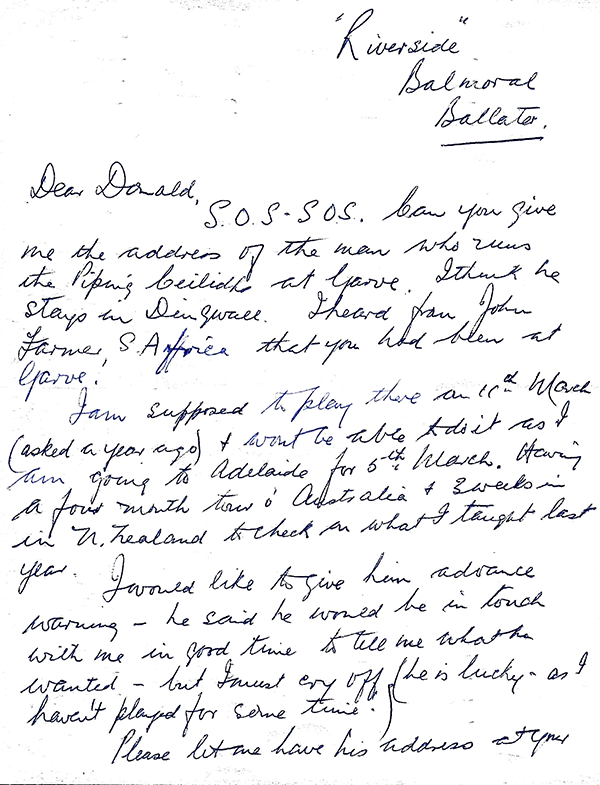 "Riverside"
Balmoral
Ballater.
Dear Donald,
S.O.S - S.O.S. Can you give
me the address of the man who runs
the Piping Ceilidhs at Garve. I think he
stays in Dingwall. I heard from John
Farmer, S. Africa that you had been at
Garve.
I am supposed to play there on 11th March
(asked a year ago) & won't be able to do it as I
am going to Adelaide for 5th March. Having
a four month tour o' Australia & 3 weeks in
in N. Zealand to check on what I taught last
year.
I would like to give him advance
warning - he said he would be in touch
with me in good time to tell me what he
wanted - but I must cry off (he is lucky - as I
haven't played for some time.)
Please let me have his address at your